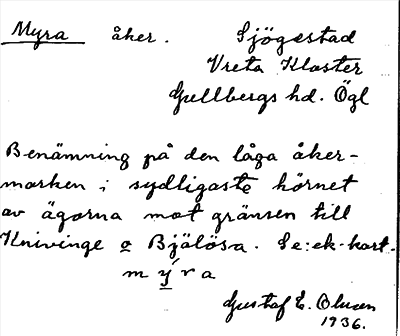 Myra åker. Sjögestad
Vreta Kloster
Gullbergs hd. Ögl
Benämning på den låga åker-
marken i sydligaste hörnet
av ägorna mot gränsen till
Knivinge o Bjälösa. Se: ek-kart.
mýra
Gustaf E. Olsson
1936.